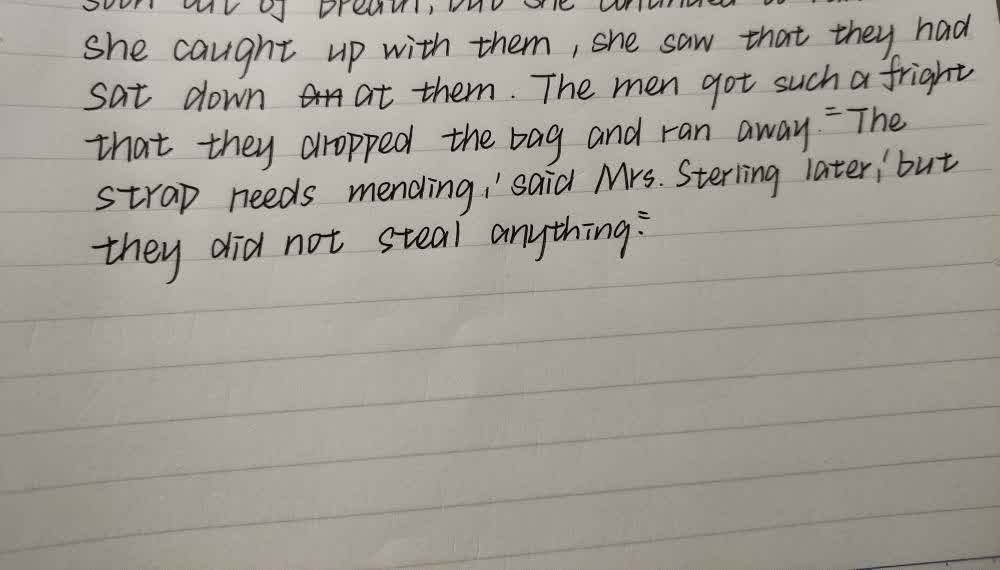 soon out of breath, but she continued to
she caught up with them, she saw that they had
sat down an at them. The men got such a fright
that they dropped the bag and ran away." The
strap needs mending,' said Mrs. Sterling later,' but
they did not steal anything."